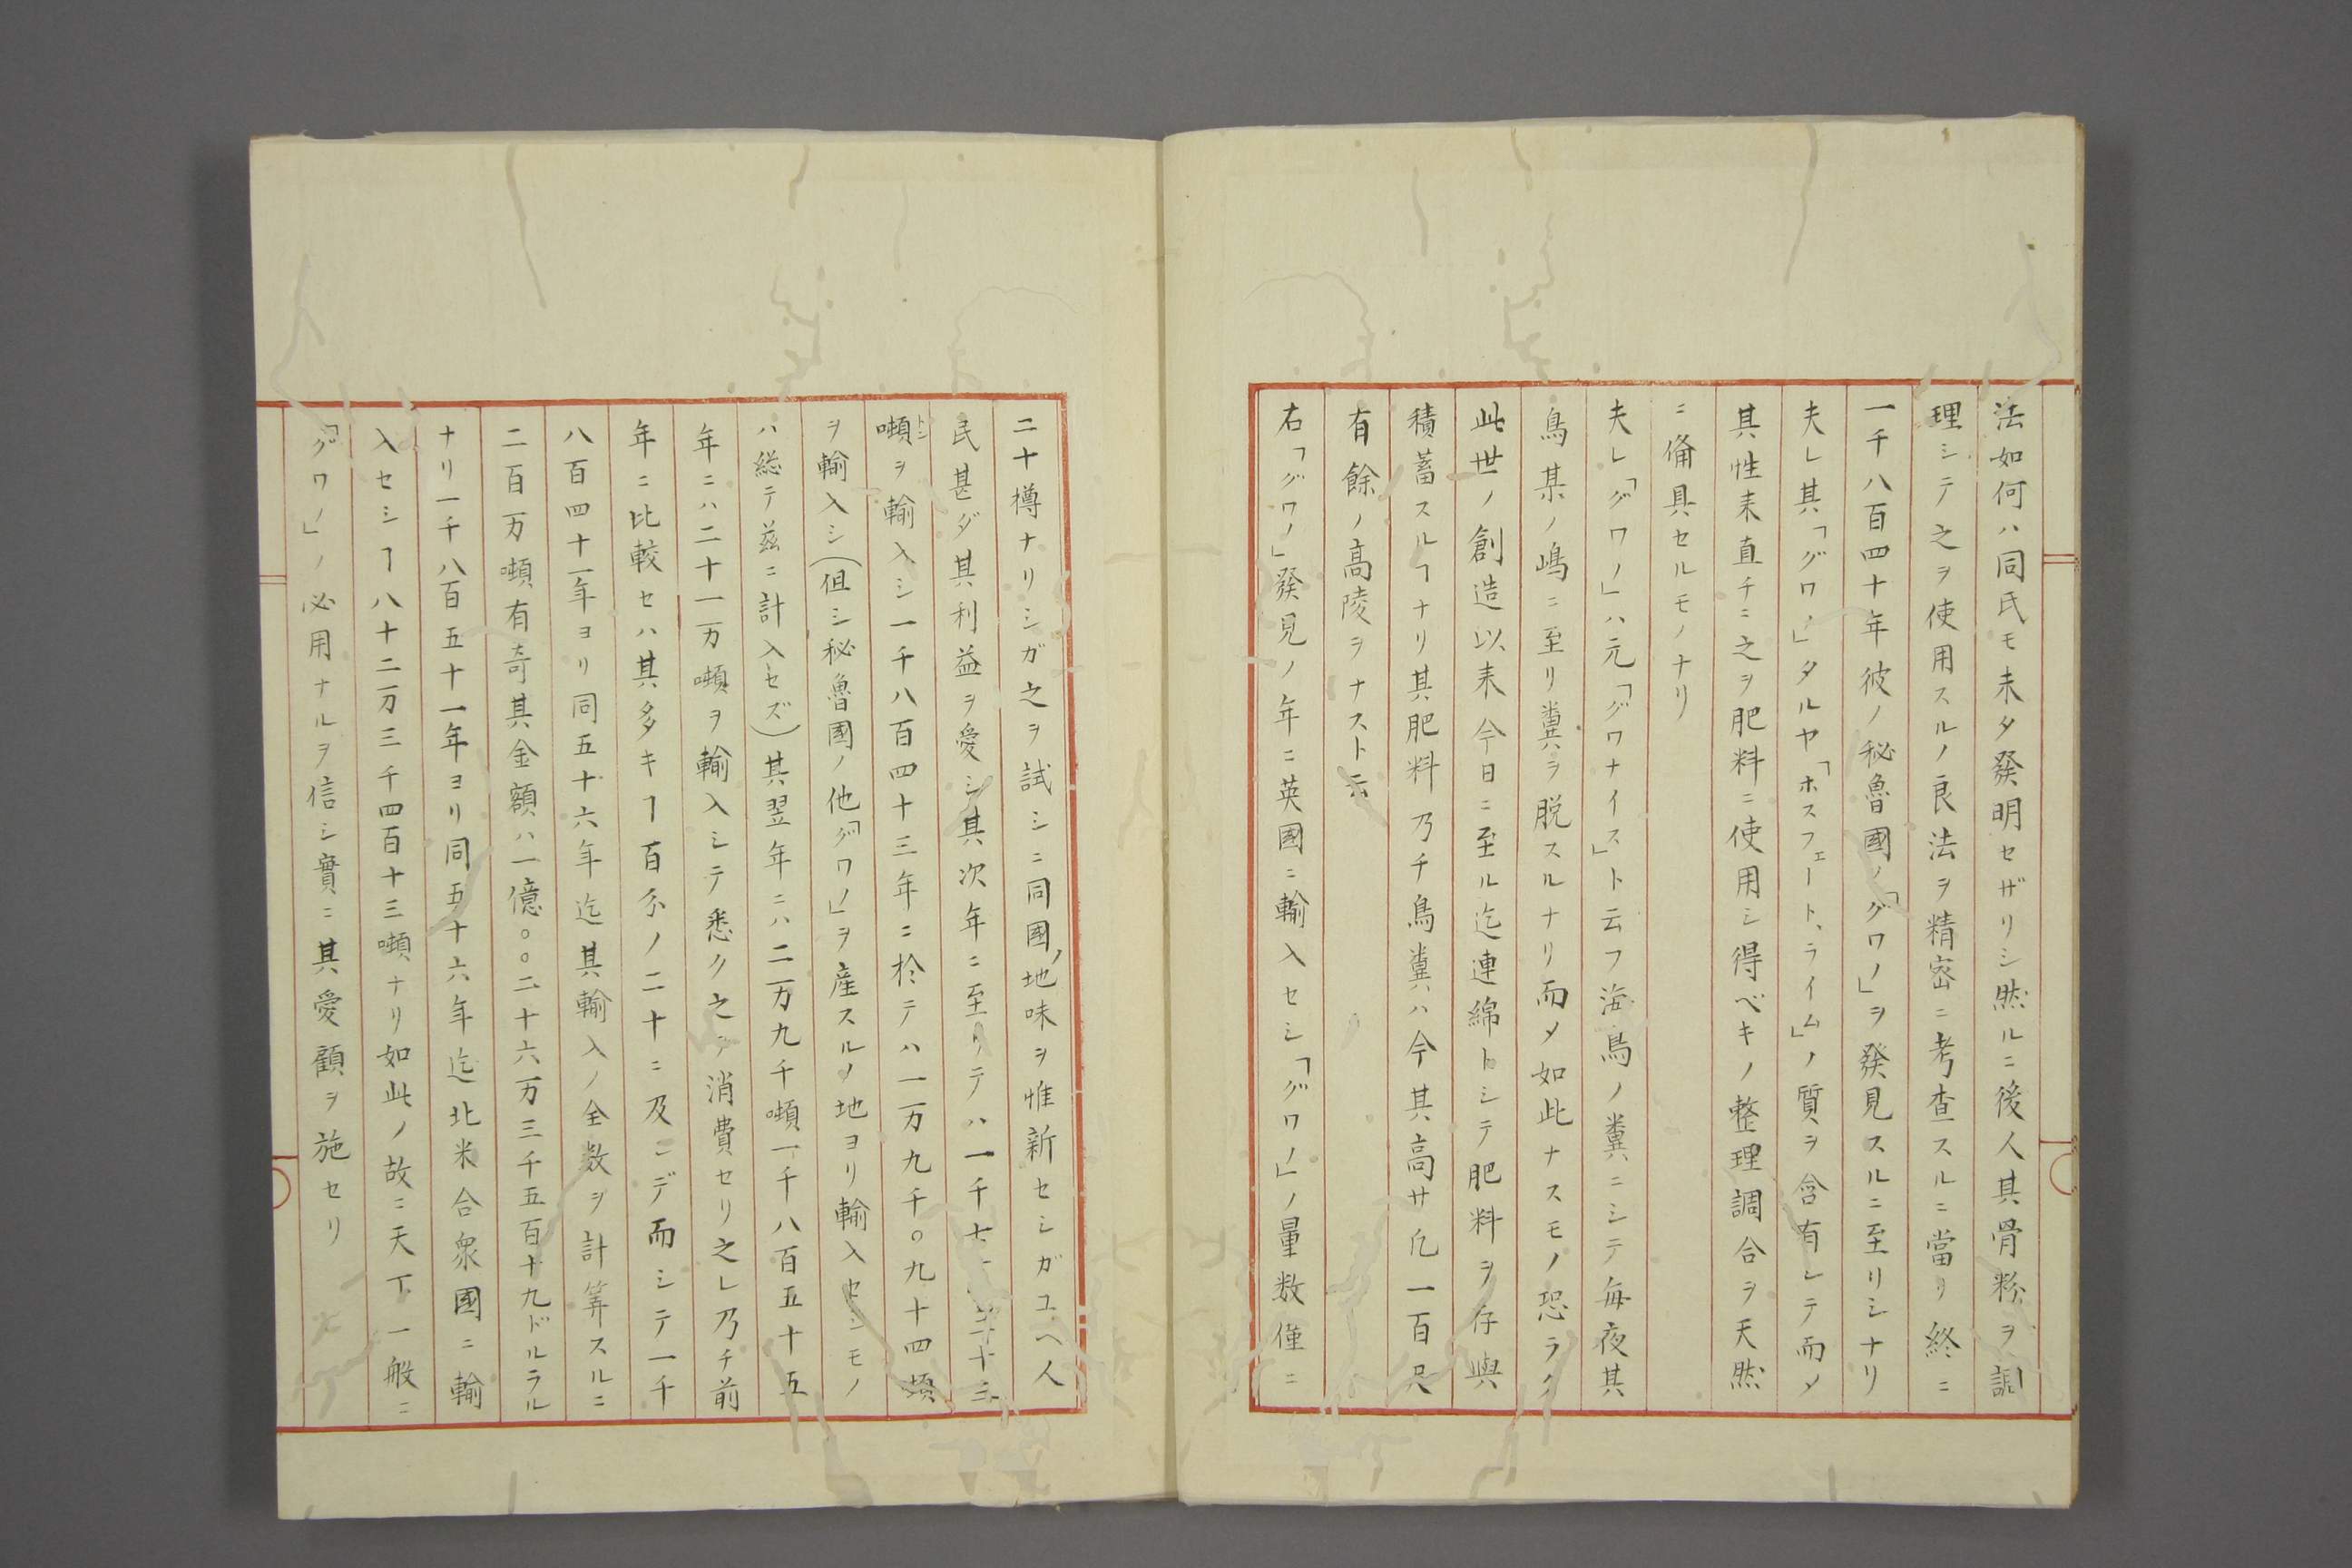 法如何ハ同氏モ未タ發明セザリシ然ルニ後人其骨粉ヲ調
理シテ之ヲ使用スルノ良法ヲ精密ニ考査スルニ當リ終ニ
一千八百四十年彼ノ秘魯國ノ「グワノ」ヲ發見スルニ至リシナリ
夫レ其「グワノ」タルヤ「ホスフェート、ライム」ノ質ヲ含有シテ而メ
其性未直チニ之ヲ肥料ニ使用シ得ベキノ整理調合ヲ天然
ニ備具セルモノナリ
夫レ「グワノ」ハ元「グワナイス」ト云フ海鳥ノ糞ニシテ毎夜其
鳥某ノ嶋ニ至リ糞ヲ脱スルナリ而メ如此ナスモノ恐ラク
此世ノ創造以来今日ニ至ル迄連綿トシテ肥料ヲ存與
積蓄スルヿナリ其肥料乃チ鳥糞ハ今其高サ凡一百尺
有餘ノ高陵ヲナスト云
右「グワノ」發見ノ年ニ英國ニ輸入セシ「グワノ」ノ量数僅ニ
二十樽ナリシガ之ヲ試シニ同國ノ地味ヲ惟新セシガユヘ人
民甚ダ其利益ヲ愛シ其次年ニ至リテハ一千七百三十三
噸ヲ輸入シ一千八百四十三年ニ於テハ一万九千〇九十四噸
ヲ輸入シ(但シ秘魯國ノ他「グワノ」ヲ産スルノ地ヨリ輸入セシモノ
ハ総テ茲ニ計入セズ)其翌年ニハ二万九千噸一千八百五十五
年ニハ二十一万噸ヲ輸入シテ悉ク之ヲ消費セリ之レ乃チ前
年ニ比較セハ其多キヿ百分ノ二十ニ及ンデ而シテ一千
八百四十一年ヨリ同五十六年迄其輸入ノ全数ヲ計算スルニ
二百万噸有奇其金額ハ一億〇〇二十六万三千五百十九ドルラル
ナリ一千八百五十一年ヨリ同五十六年迄北米合衆國ニ輸
入セシヿ八十二万三千四百十三噸ナリ如此ノ故ニ天下一般ニ
「グワノ」ノ必用ナルヲ信シ實ニ其愛顧ヲ施セリ